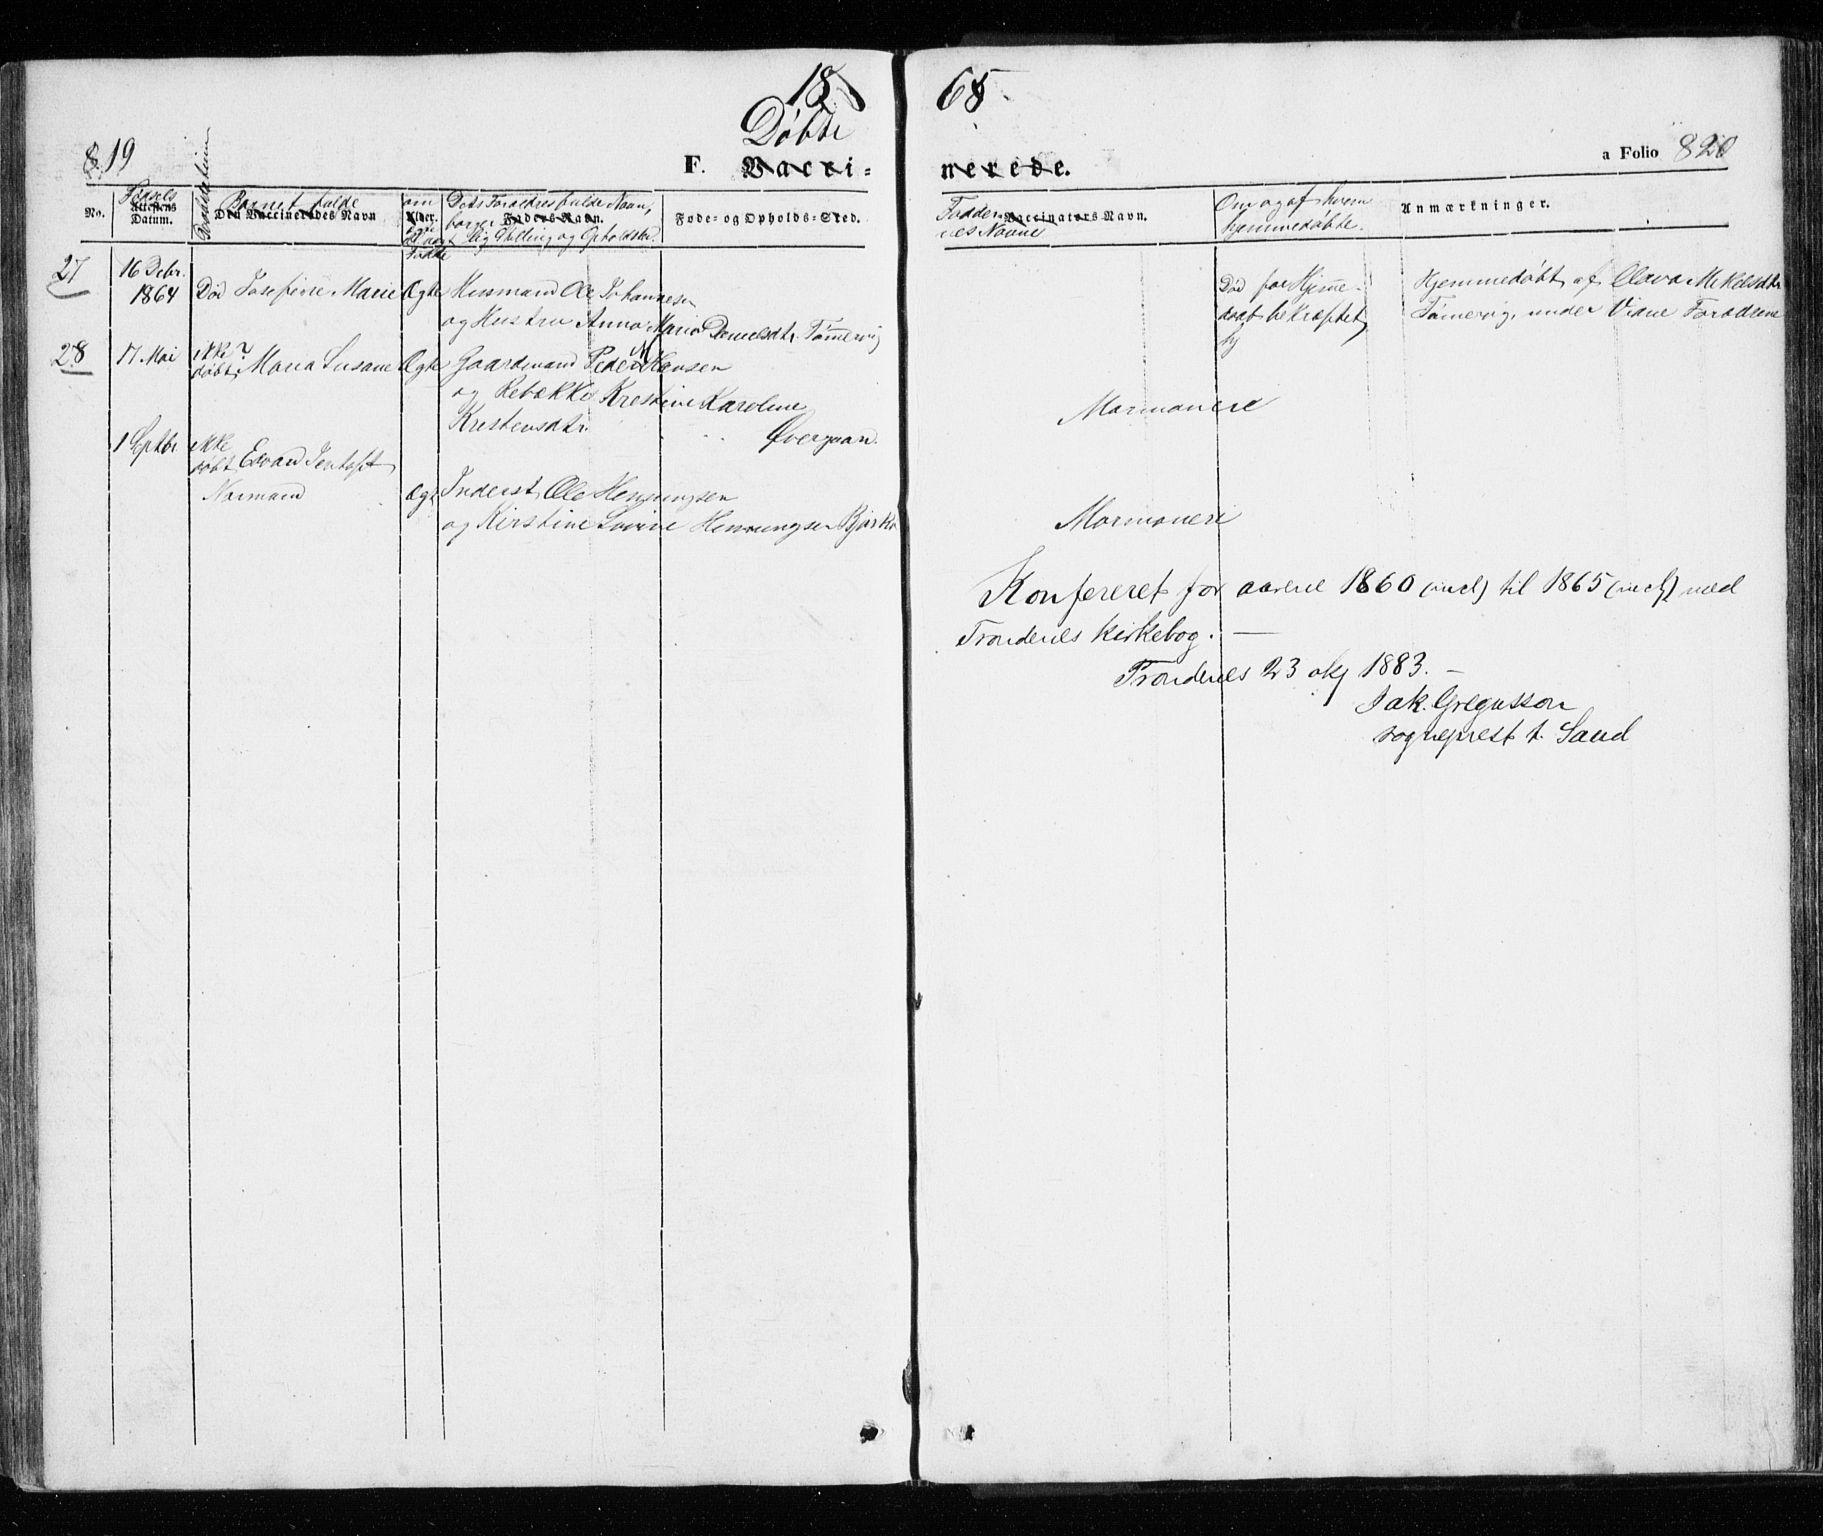 18 65.
Døbte
819
F. Vacci-
nerede.
a Folio 820
No.
Fødsels
Attestens
Datum.
Barnet fulde
Den Vaccineredes Navn
om
Alder.
ægte
Fødte
Dets Forældres fulde Navn,
borger-
Faders Navn.
lig Stilling og Opholdsted.
Føde- og Opholds-Sted.
Fadder-
nes Navne
Vaccinators Navn.
Om og af hvem
hjemmedøbte.
Anmærkninger.
27
16 Debr.
1864
Død Josefine Marie
Ægte
Husmand Ole Johannesen
og Hustru Anna Maria Danielsdtr. Tømervig
Død før Hjemme-
daab bekræftet
Hjemmedøbt af Olava Mikelsdtr
Tømervig, under Vidne Forældrene
28
17 Mai
ikke
døbt, Maria Susane
Ægte
Gaardmand Peder M Hansen
og Rebække Krestine Karoline
Krestensdtr.
Øvergaan.
Mormonere
1 Septbr.
ikke
døbt, Edvard Jentoft
Normand
Ægt.
Inderst, Ole Henningsen
og Kirstine Lovise Henningsen Bjarkø
Mormonere
Konfereret for aarene 1860 (incl) til 1865 (incl) med
Trondenes Kirkebog. —
Trondenes 23 okt 1883. —
Jak. Gregusson
sogneprest t. Sand